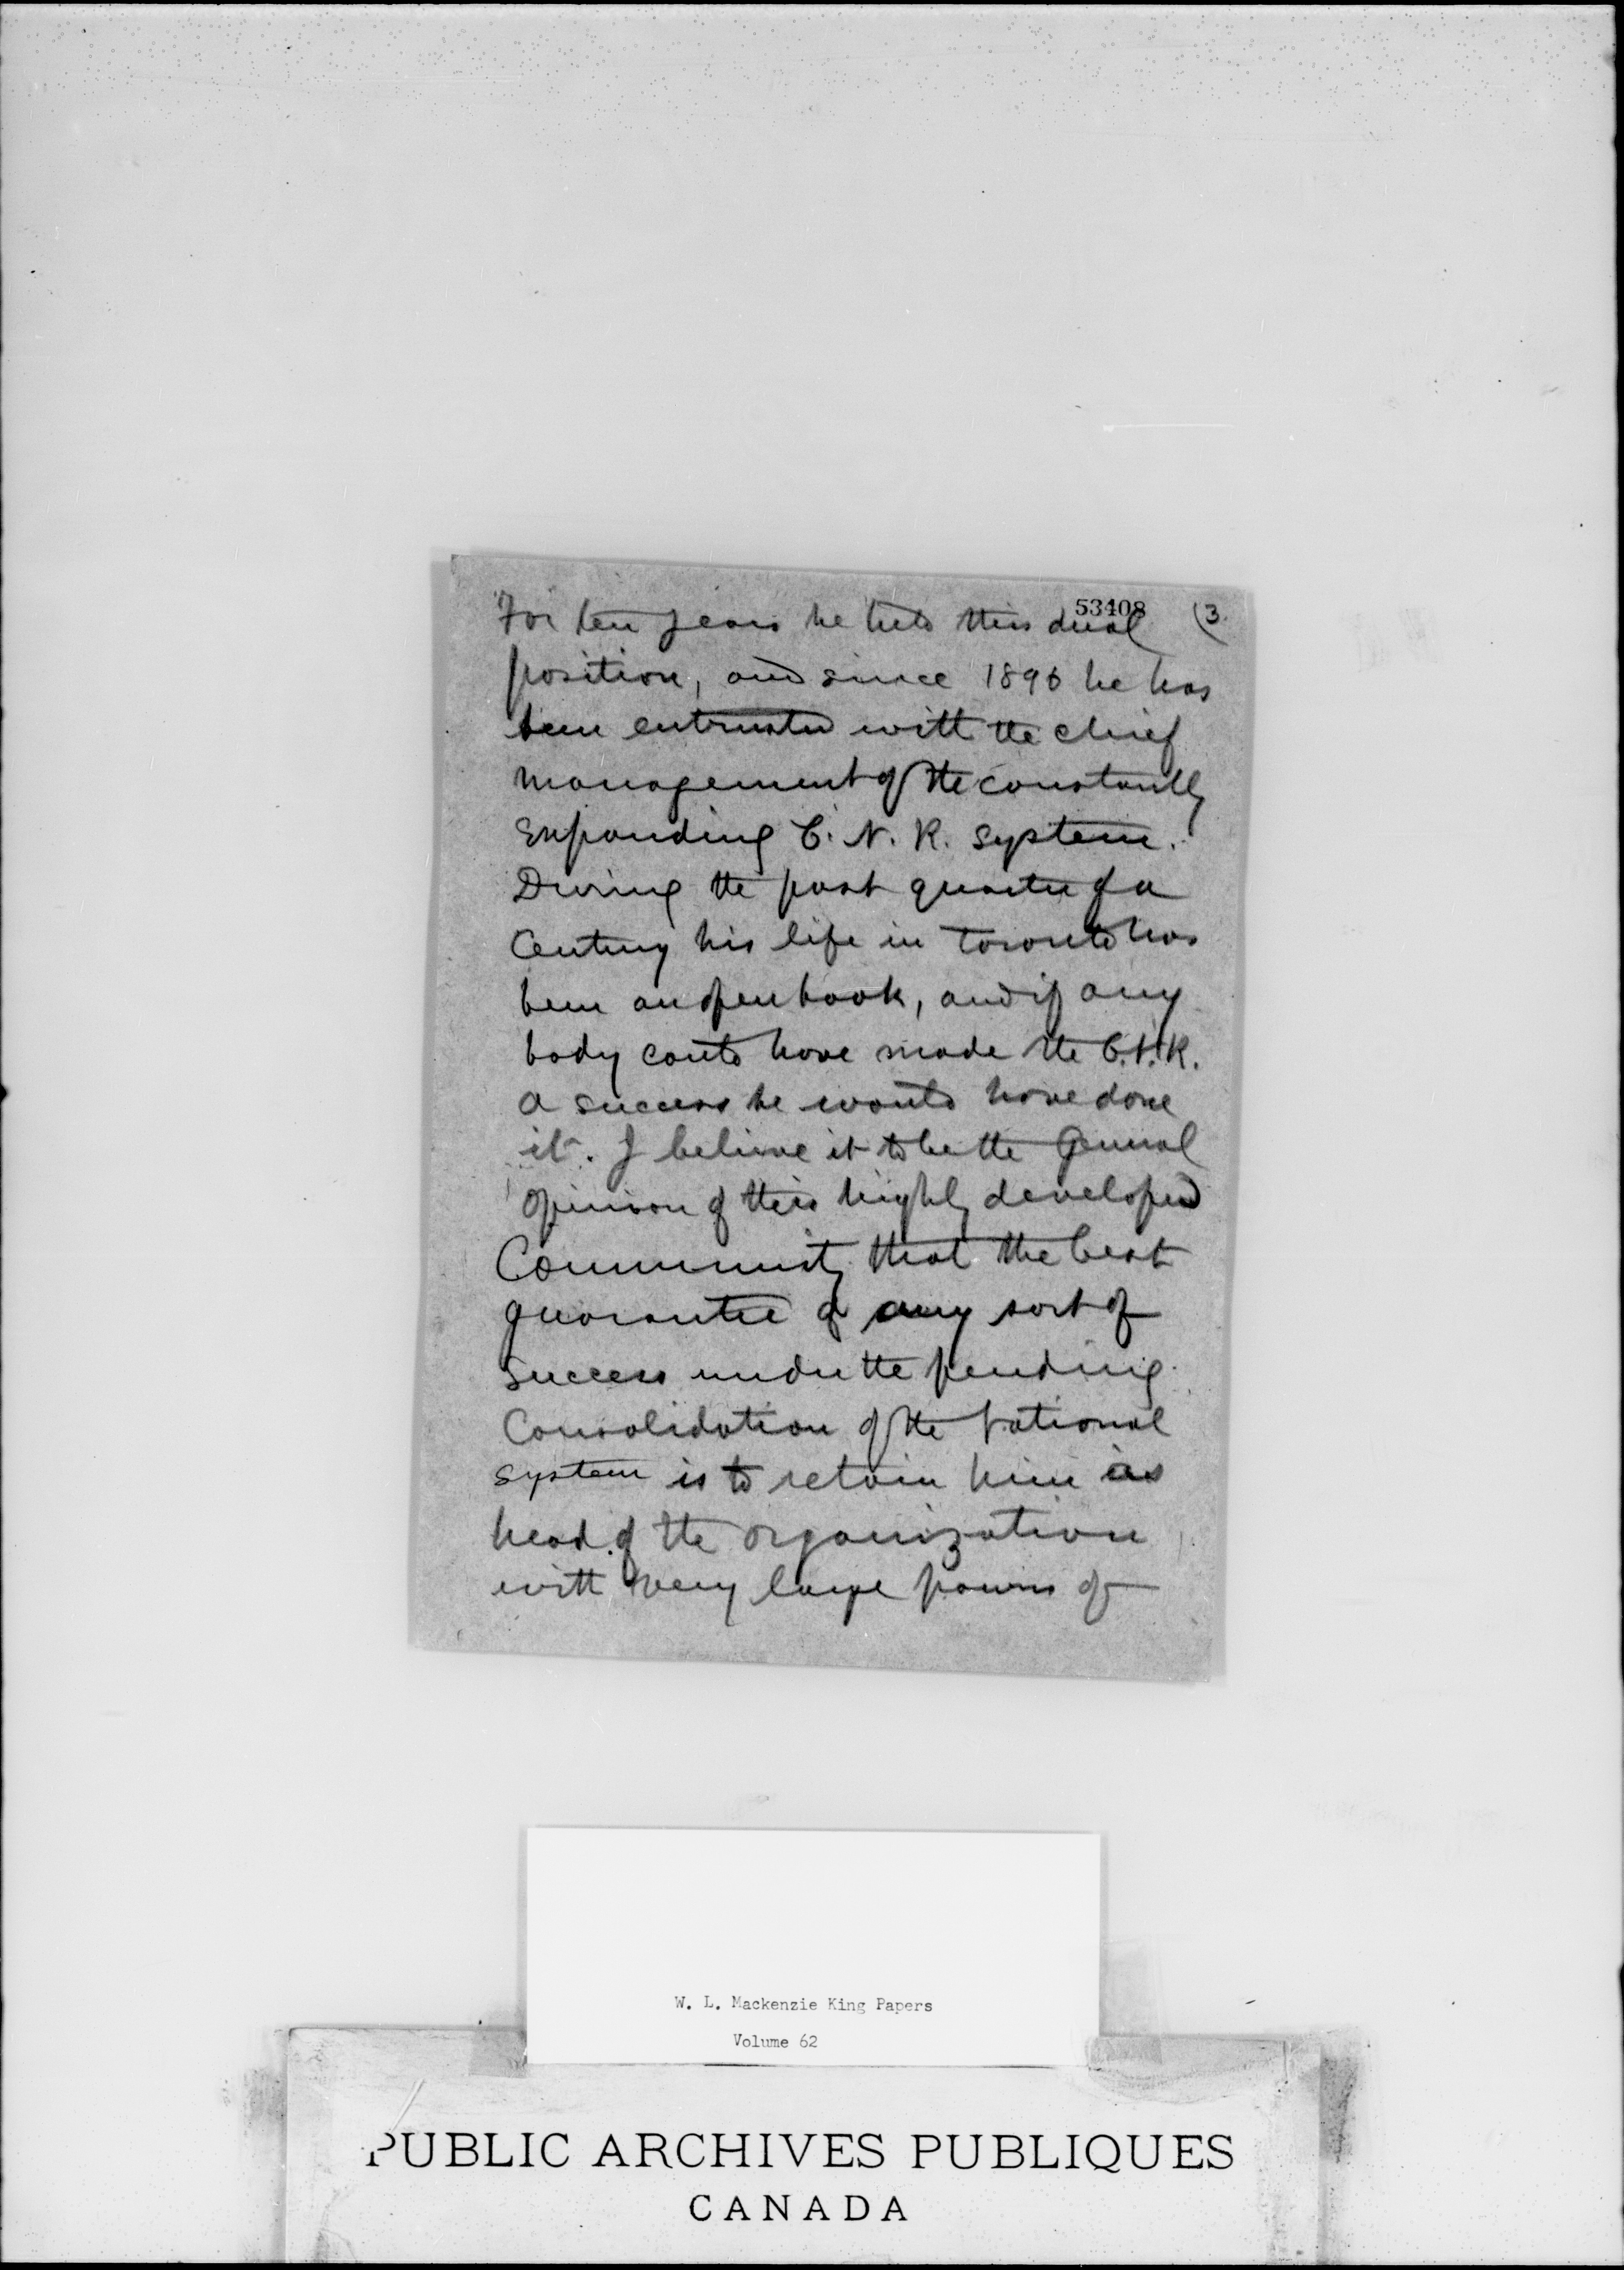 53408
(3
For ten years he held this dual
position, and since 1896 he has
been entrusted with the chief
management of the constantly
expanding C. N. R. system.
During the past quarter of a
Century his life in Toronto has
been an open book, and if any
body could have made the C.N.R.
a success he would have done
it. I believe it to be the general
opinion of this highly developed
Community that the best
guarantee of any sort of
success under the pending
Consolidation of the National
system is to retain him as
head of the organization
with very large powers of
W. L. Mackenzie King Papers
Volume 62
PUBLIC ARCHIVES PUBLIQUES
CANADA